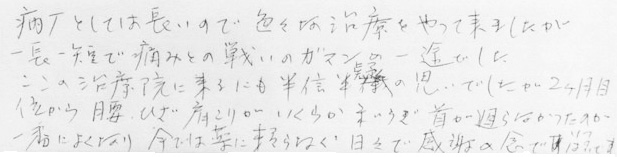 病丁としては長いので色々な治療をやって来ましたが
一長一短で痛みとの戦いのガマンの一途でした
ここの治療院に来るにも半信半疑の思いでしたが2ヶ月目
位から腰、ひざ、肩こりがいくらか和らぎ首が廻らなかったのが
一番によくなり今では薬に頼らなく日々で感謝の念で